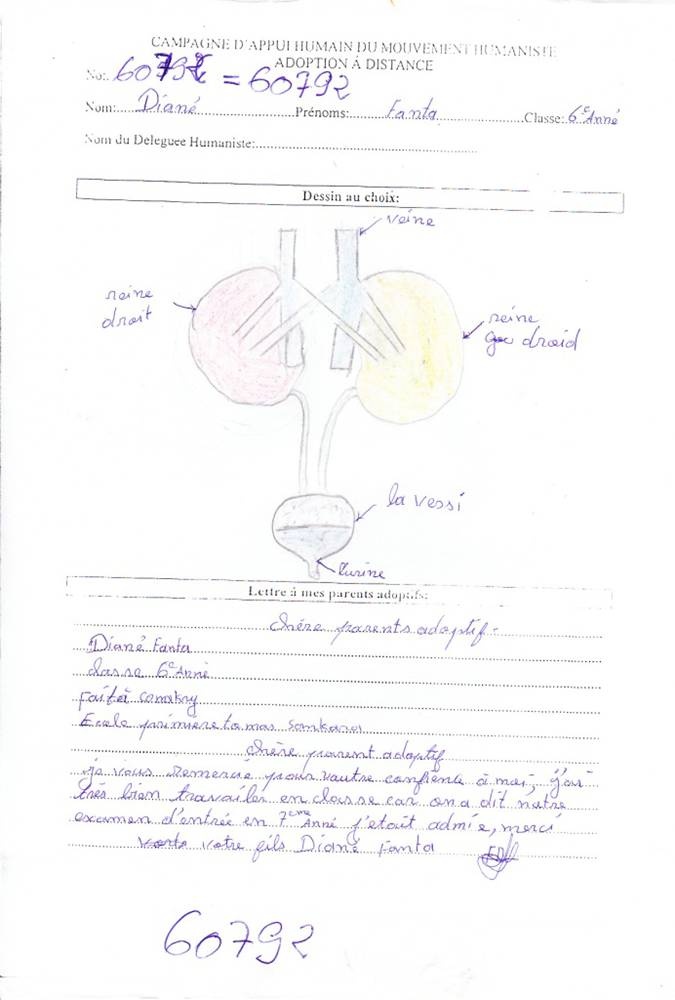 CAMPAGNE D'APPUI HUMAIN DU MOUVEMENT HUMANISTE
ADOPTION Á DISTANCE
No: 60792 = 60792
Nom: Diané Prénoms: Fanta Classe: 6e Anné
Nom du Deleguee Humaniste:
Dessin au choix:
veine
reine
droit
reine
droid
la vessi
l'urine
Lettre á mes parents adoptifs:
chére parents adoptif-
Diané Fanta
classe 6e Anné
Fait á conakry
Ecole primière tomas sankara
chére parent adoptif
je vous remercié pour vautre confience á moi, j'ai
trés bien travailér en classe car on a dit nutre
examen d'entrée en 7eme Anné j'etait admie, merci
votre fils Diané Fanta
60792